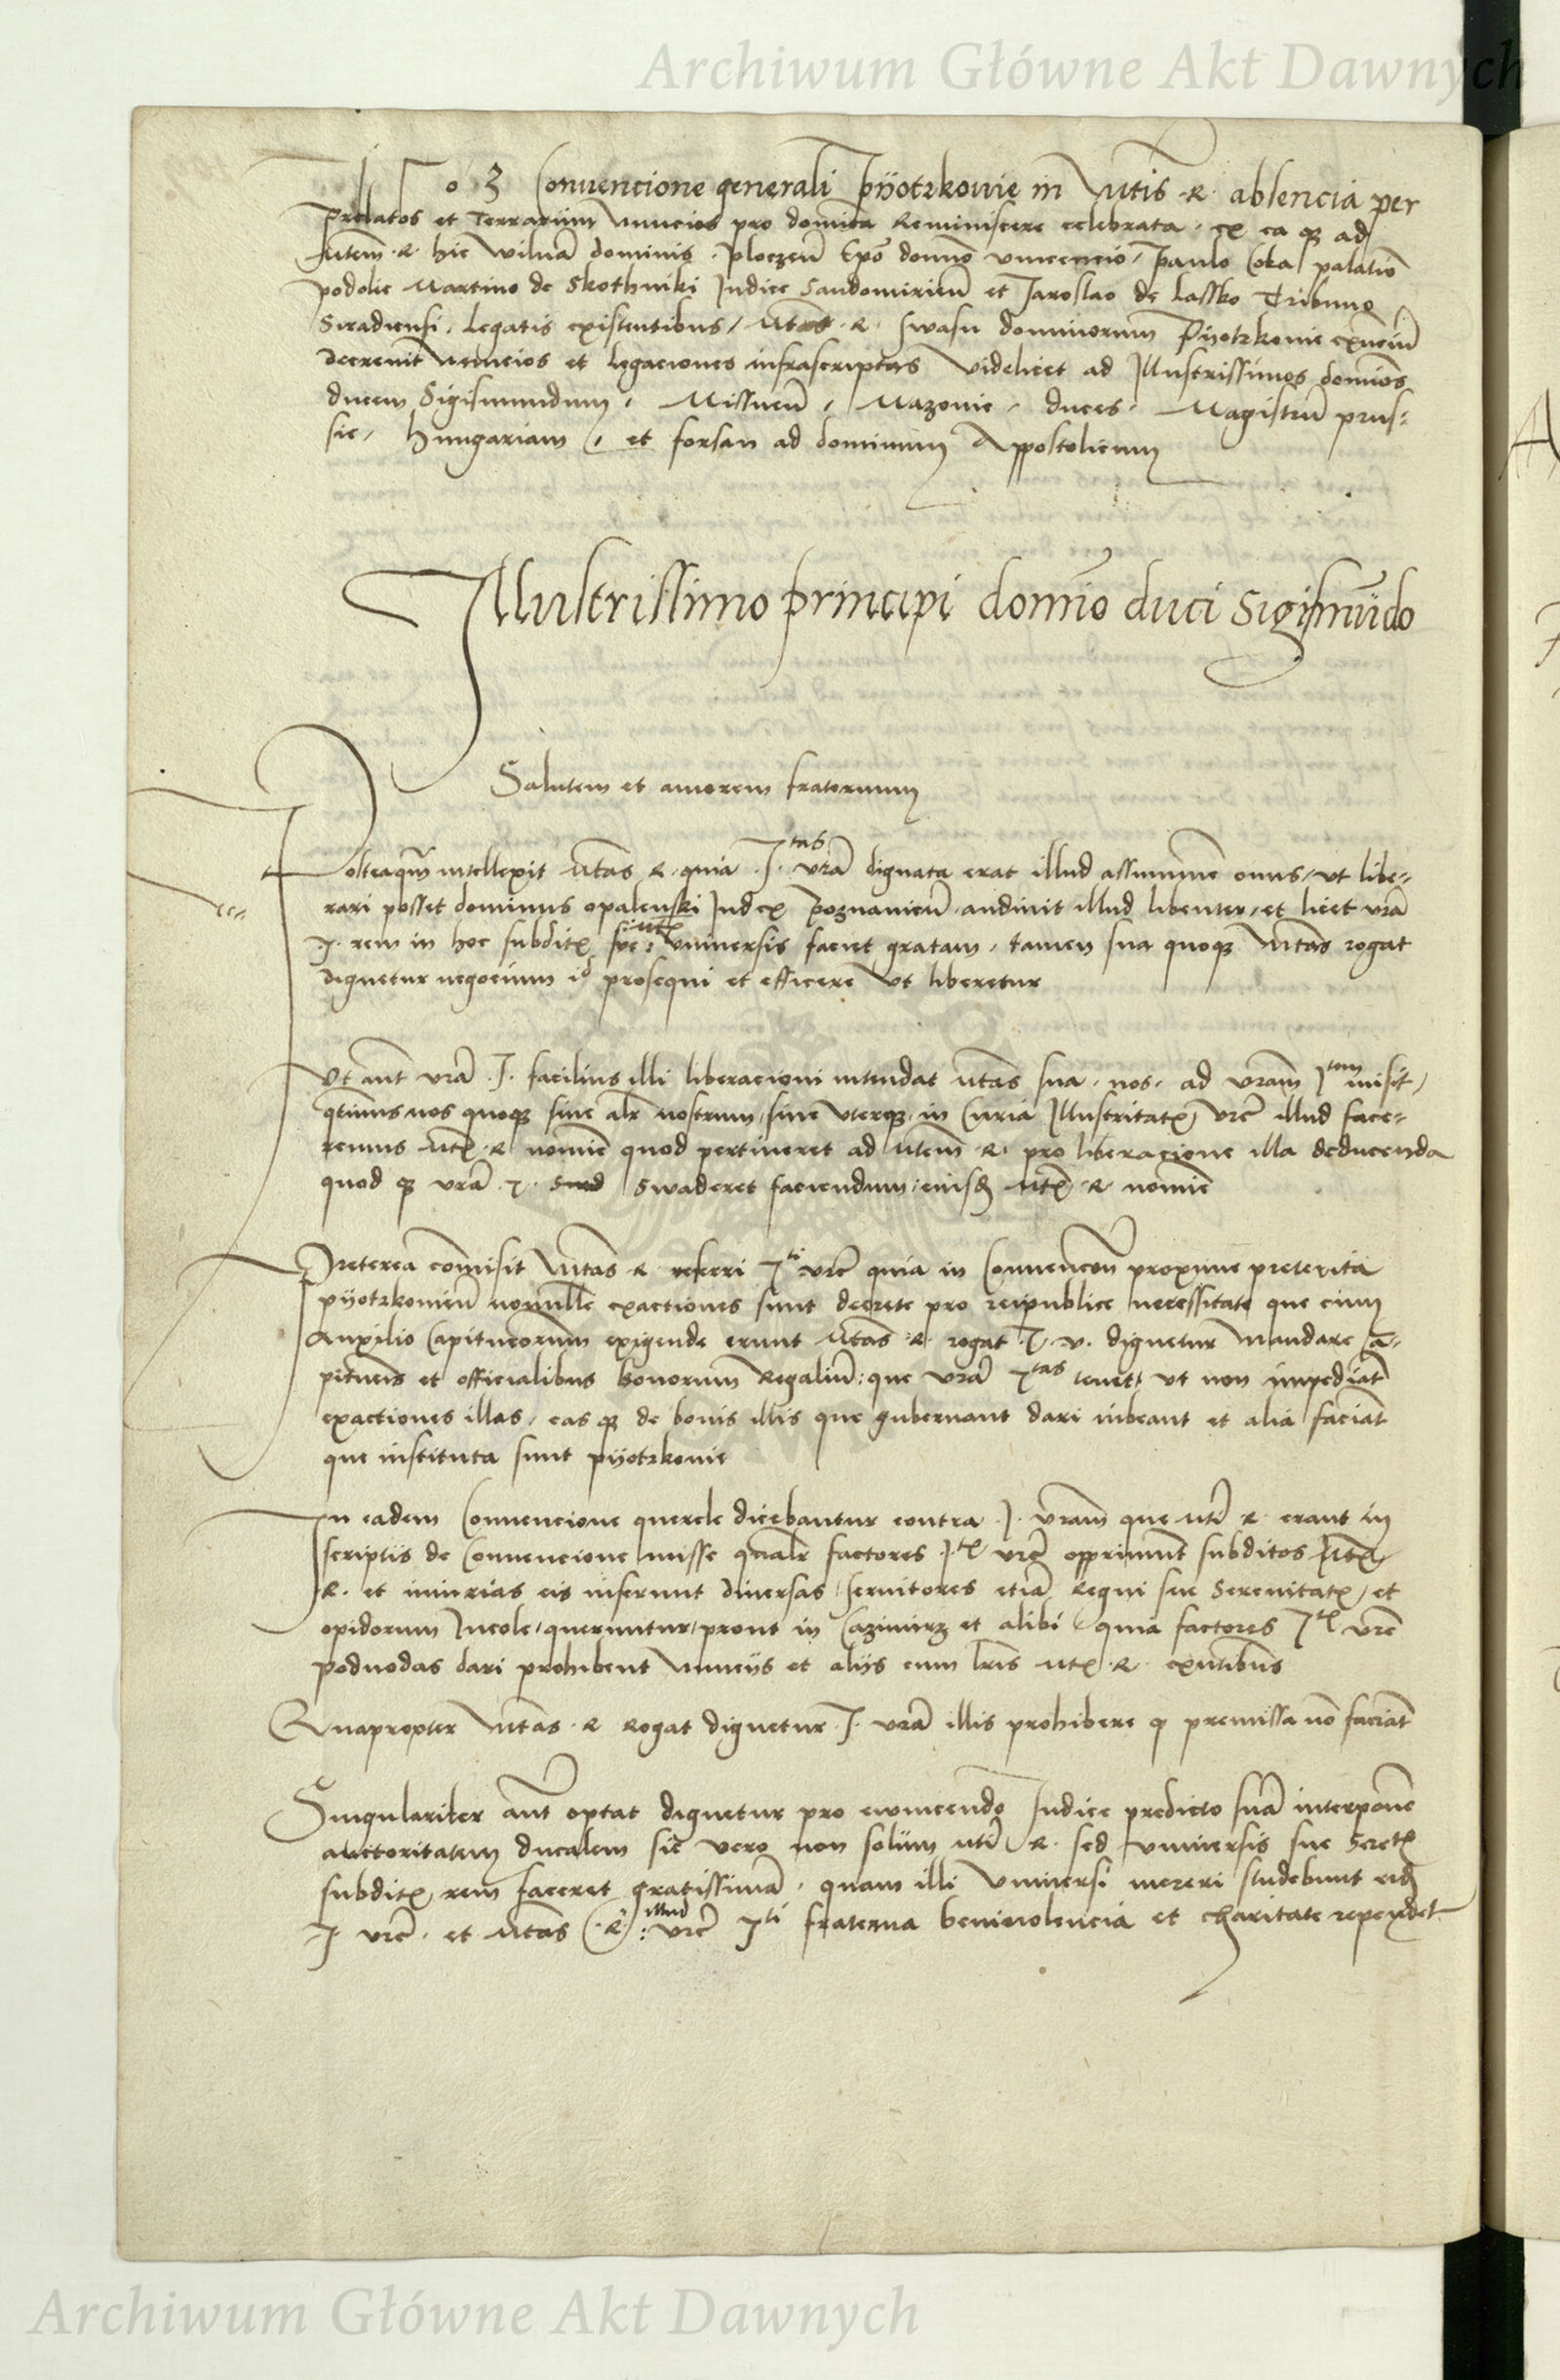 Archiwum Główne Akt Dawnych
1503 Convencione generali Pijotrkowie in Mtis R absencia per
Prelatos et Terrarum Nuncios pro domica Reminiscere celebrata ex ea q; ad
Mtem R hic Wilnā dominis Ploczeñ Epō donno vincencio, Paulo Cola palatino
podolie Martino de Skothniki Iudice Sandomirieñ et Iaroslao de Lassko Tribuno
Siradiensi, Legatis existentibus, Mtas R swasu dominorum Pijotrkowie exnciū
decrevit nuncios et legaciones infrascriptas videlicet ad Illustrissimos domīos
ducem Sigismundum, Missneñ, Mazovie duces, Magistrū prus-
sie, Hungariam, et forsan ad dominum Appostolicum
Illustrissimo principi domīo duci Sigismūdo
Salutem et amorem fraternum
Posteaqm intellexit Mtas R quia I. tas vrā dignata erat illud assumme onus, ut libe-
rari posset dominus opalenski Iudex Poznanieñ audivit illud libenter, et licet vrā
I. rem in hoc subditx sue universis faciet gratam, tamen sua quoq; Mtas rogat
dignetur negocium id prosequi et efficere ut liberetur
Ut aut vrā I. facilius illi liberacioni intendat Mtas sua nos ad vram Item misit,
qtinus nos quoq; sive altr nostrum, sive uterq; in Curia Illustritatx vre illud face-
remus Mtx R nomīe quod pertineret ad Mtem R pro liberacione illa deducenda
quod q; vrā I. swaderet faciendum eiusd Mtx R nomīe
Preterea comisit Mtas R referri Iti vre quia in Convencōn proxime preterita
pijotrkovieñ nonulle exactiones sunt decrete pro reipublice necessitate que cum
Auxilio Capitneorum exigende erunt Mtas R rogat I. v. dignetur mandare Ca-
pitneis et officialibus bonorum Regaliū que vrā Itas tenet, ut non impediāt
exactiones illas, eas q; de bonis illis que gubernant dari iubeant et alia faciāt
que instituta sunt pijotrkowie
In eadem Convencione querele dicebantur contra I. vram que Mti R erant in
scriptis de Convencione misse qualr factores Itx vre opprimunt subditos Mtx
R. et iniurias eis inferunt diversas, servitores etiā Regni sue Serenitatx, et
opidorum Incole, queruntur, prout in Cazimirz et alibi quia factores Itx vre
podvodas dari prohibent nuncijs et alijs cum lris Mtx R exntibus
Quapropter Mtas R Rogat dignetur I. vrā illis prohibere q premissa nō faciāt
Singulariter aut optat dignetur pro evincendo Iudice predicto suā interponē
auctoritatem ducalem sic vero non solum Mti R. sed universis sue Seretx
subditx rem faceret gratissimā, quam illi Universi mereri studebunt eid
I. vre et Mtas R illud vre Iti fraterna benivolencia et charitate rependet
Archiwum Główne Akt Dawnych